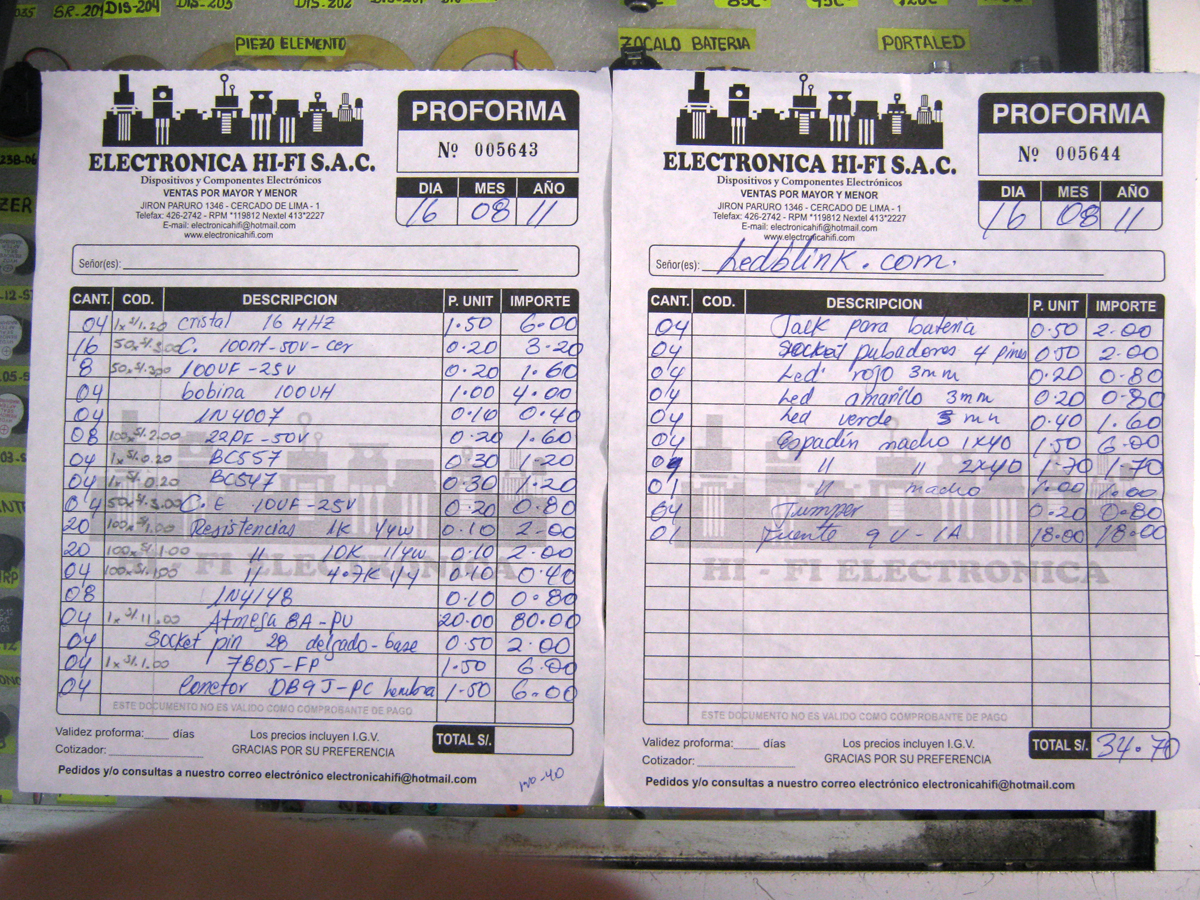 GR-201 DIS-204 DIS-203 DIS-202
PIEZO ELEMENTO
ZOCALO BATERIA
PORTALED
ELECTRONICA HI-FI S.A.C.
Dispositivos y Componentes Electrónicos
VENTAS POR MAYOR Y MENOR
JIRON PARURO 1346 - CERCADO DE LIMA - 1
Telefax: 426-2742 - RPM *119812 Nextel 413*2227
E-mail: electronicahifi@hotmail.com
www.electronicahifi.com
PROFORMA
Nº 005643
DIA MES AÑO
16 08 11
Señor(es):
CANT. COD. DESCRIPCION P. UNIT IMPORTE
04 1x S/1.20 cristal 16 MHZ 1.50 6.00
16 50x S/.3.00 C. 100nf-50V-cer 0.20 3.20
8 50x S/.4.300 100UF-25V 0.20 1.60
04 bobina 100UH 1.00 4.00
04 1N4007 0.10 0.40
08 100x S/.2.00 22PF-50V 0.20 1.60
04 1x S/.0.20 BC557 0.30 1.20
04 1x S/.0.20 BC547 0.30 1.20
04 50x S/.3.00 C.E 10UF-25V 0.20 0.80
20 100x S/.1.00 Resistencias 1K 1/4w 0.10 2.00
20 100x S/.1.00 11 10K 1/4w 0.10 2.00
04 100x S/.1.00 11 4.7K 1/4 0.10 0.40
08 1N4148 0.10 0.80
04 1x S/.11.00 Atmega 8A-PU 20.00 80.00
04 Socket pin 28 delgado-base 0.50 2.00
04 1x S/.1.00 7805-FP 1.50 6.00
04 Conetor DB9J-PC hembra 1.50 6.00
ESTE DOCUMENTO NO ES VALIDO COMO COMPROBANTE DE PAGO
HI - FI ELECTRONICA
Validez proforma: días
Los precios incluyen I.G.V.
TOTAL S/.
Cotizador:
GRACIAS POR SU PREFERENCIA
Pedidos y/o consultas a nuestro correo electrónico electronicahifi@hotmail.com
ELECTRONICA HI-FI S.A.C.
Dispositivos y Componentes Electrónicos
VENTAS POR MAYOR Y MENOR
JIRON PARURO 1346 - CERCADO DE LIMA - 1
Telefax: 426-2742 - RPM *119812 Nextel 413*2227
E-mail: electronicahifi@hotmail.com
www.electronicahifi.com
PROFORMA
Nº 005644
DIA MES AÑO
16 08 11
Señor(es): Ledblink.com.
CANT. COD. DESCRIPCION P. UNIT IMPORTE
04 Jack para bateria 0.50 2.00
04 Socket pulsadores 4 pines 0.50 2.00
04 Led rojo 3mm 0.20 0.80
04 Led amarillo 3mm 0.20 0.80
04 Led verde 3mm 0.40 1.60
04 Espadín macho 1x40 1.50 6.00
01 11 11 2x40 1.70 1.70
01 11 macho 1.00 1.00
04 Jumper 0.20 0.80
01 Fuente 9V-1A 18.00 18.00
HI - FI ELECTRONICA
ESTE DOCUMENTO NO ES VALIDO COMO COMPROBANTE DE PAGO
Validez proforma: días
Los precios incluyen I.G.V.
TOTAL S/. 34.70
Cotizador:
GRACIAS POR SU PREFERENCIA
Pedidos y/o consultas a nuestro correo electrónico electronicahifi@hotmail.com